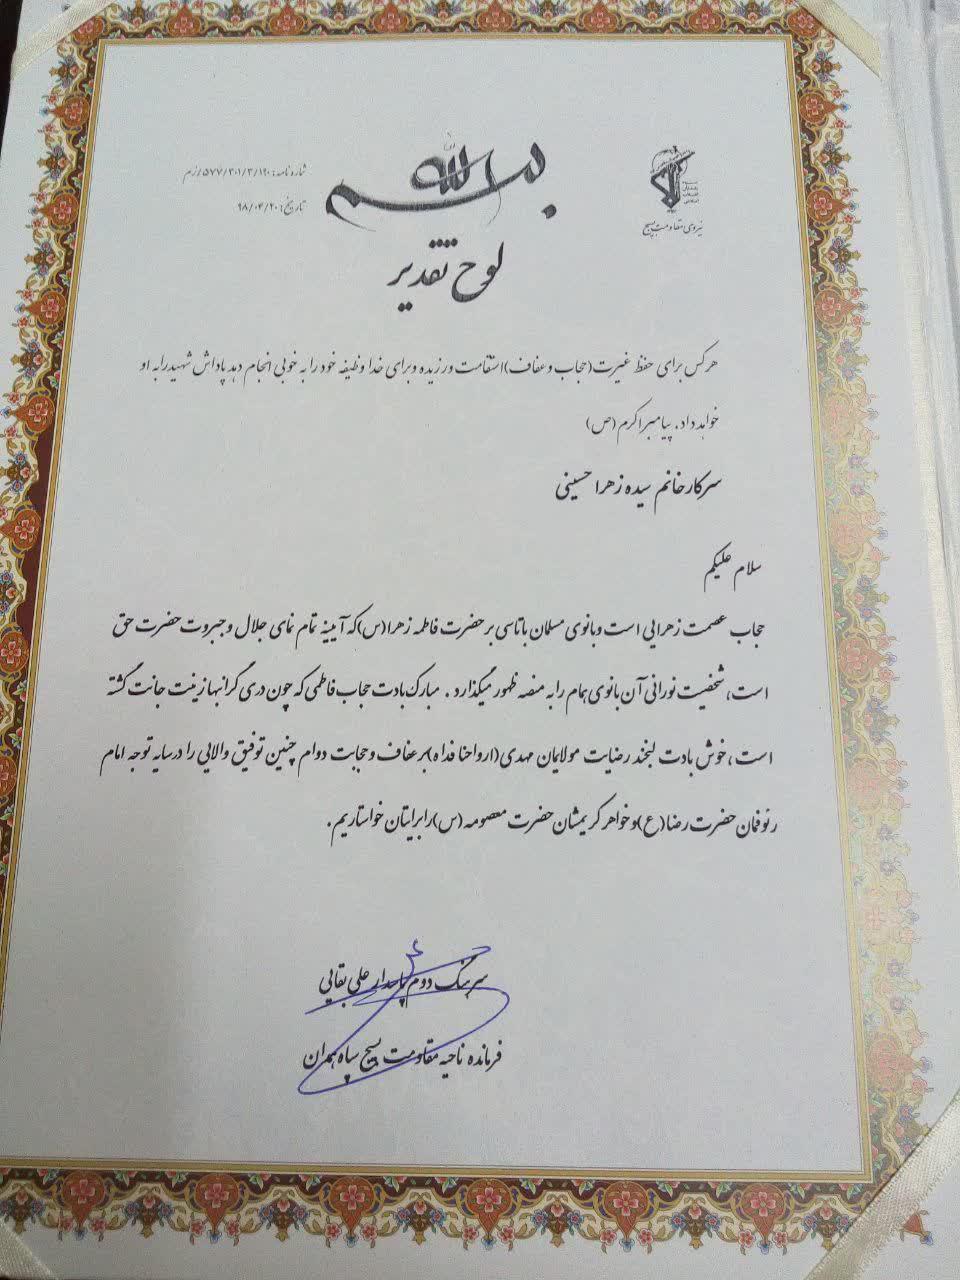 بسم الله
شماره نامه: ۵۷۷/۳۰۱/۳/۱۹۰/ز م
تاریخ: ۹۸/۰۴/۲۰
نیروی مقاومت بسیج
لوح تقدیر
هرکس برای حفظ غیرت(حجاب و عفاف)استقامت ورزیده وبرای خدا وظیفه خود را به خوبی انجام دهد پاداش شهید را به او
خواهد داد. پیامبر اکرم (ص)
سرکار خانم سیده زهرا حسینی
سلام علیکم
حجاب عصمت زهرایی است و بانوی مسلمان با تاسی بر حضرت فاطمه زهرا(س)که آیینه تمام نمای جلال و جبروت حضرت حق
است، شخصیت نورانی آن بانوی همام را به منصه ظهور میگذارد. مبارک بادت حجاب فاطمی که چون دری گرانبها زینت جانت گشته
است، خوش بادت لبخند رضایت مولایمان مهدی(ارواحنا فداه)بر عفاف و حجابت دوام چنین توفیق والایی را در سایه توجه امام
رئوفمان حضرت رضا(ع)و خواهر کریمشان حضرت معصومه(س)را برایتان خواستاریم.
سرهنگ دوم پاسدار علی بقایی
فرمانده ناحیه مقاومت بسیج سپاه همدان